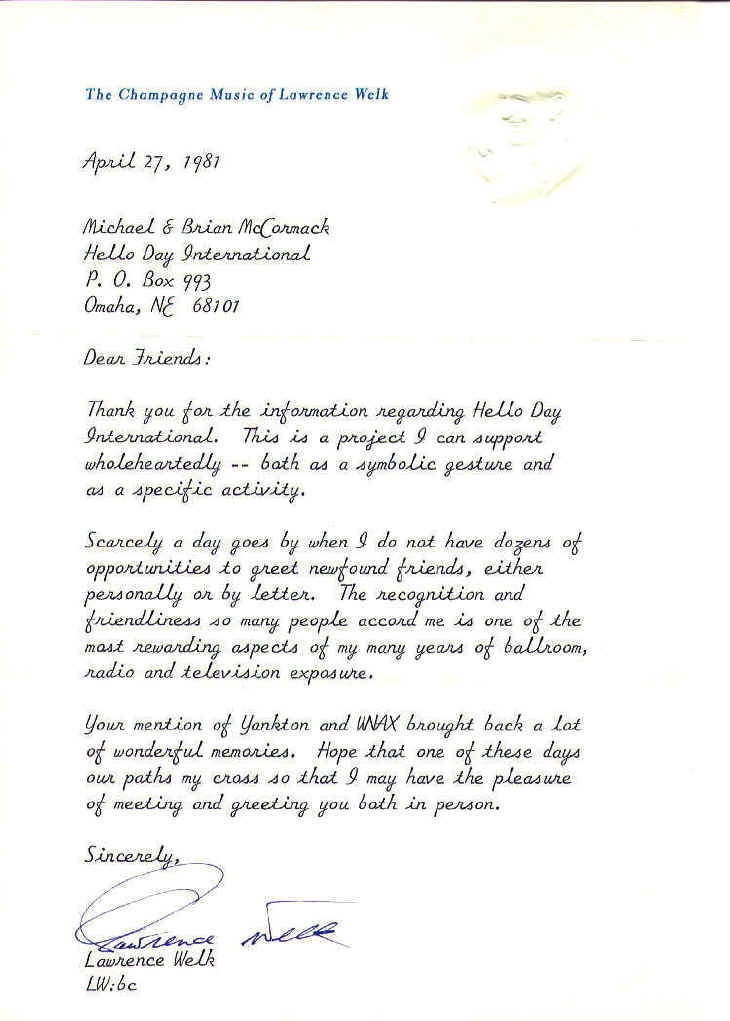 The Champagne Music of Lawrence Welk
April 27, 1981
Michael & Brian McCormack
Hello Day International
P. O. Box 993
Omaha, NE 68101
Dear Friends:
Thank you for the information regarding Hello Day
International. This is a project I can support
wholeheartedly -- both as a symbolic gesture and
as a specific activity.
Scarcely a day goes by when I do not have dozens of
opportunities to greet newfound friends, either
personally or by letter. The recognition and
friendliness so many people accord me is one of the
most rewarding aspects of my many years of ballroom,
radio and television exposure.
Your mention of Yankton and WNAX brought back a lot
of wonderful memories. Hope that one of these days
our paths my cross so that I may have the pleasure
of meeting and greeting you both in person.
Sincerely,
Lawrence Welk
Lawrence Welk
LW:bc